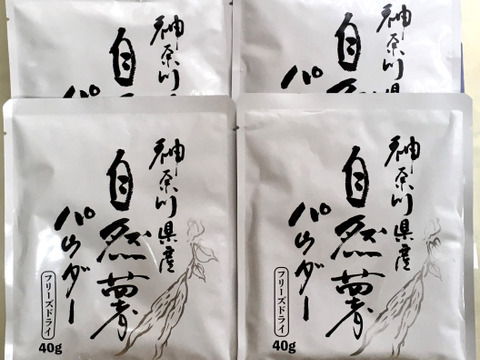 神奈川県産
自然薯
パ
神奈川県産
自然
パ
神奈川県産
自然薯
パウダー
フリーズドライ
40g
神奈川県産
自然薯
パウダー
フリーズドライ
40g